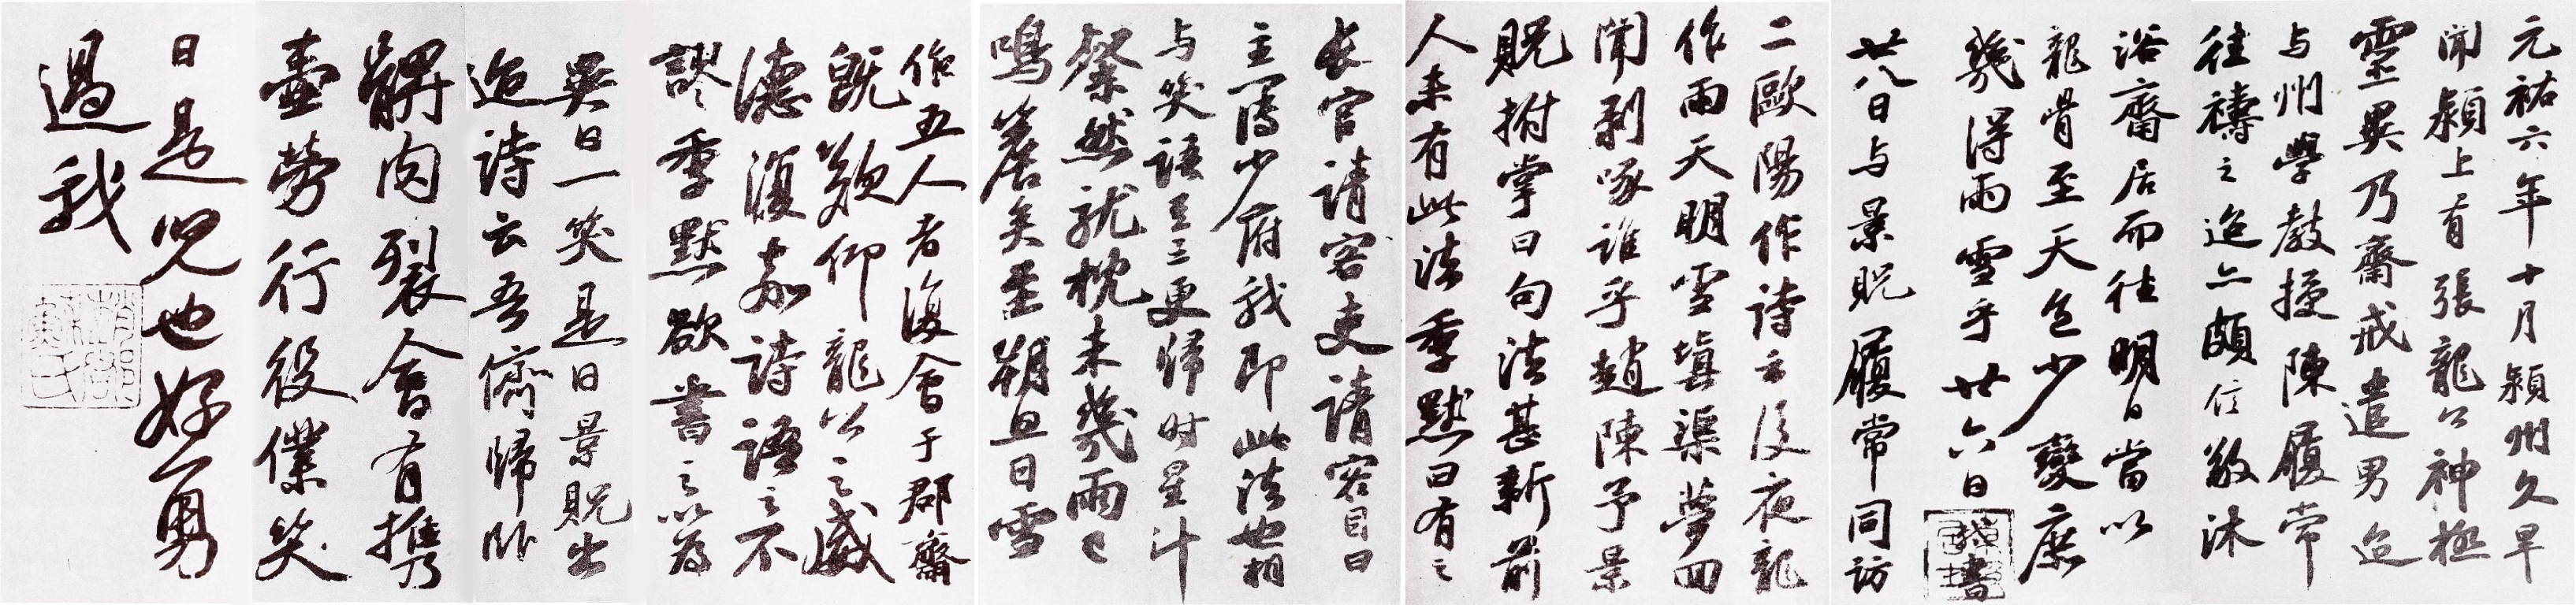 元祐六年十月潁州久旱
聞潁上有張龍公神極
靈異乃齋戒遣男迨
与州學教授陳履常
往禱之迨亦頗信敬沐
浴齋居而往明日當以
龍骨至天色少變庶
幾得雨雪乎廿六日軾書
廿八日与景貺履常同訪
二歐陽作詩云後夜龍
作雨天明雪填渠夢回
聞剥啄誰乎趙陳予景
貺拊掌曰句法甚新前
人未有此法季默曰有之
長官請客吏請客目曰
主簿少府我即此法也相
与笑語至三更歸時星斗
粲然就枕未幾雨已
鳴簷矣至朔旦日雪
作五人者復會于郡齋
既歎仰龍公之威
德復嘉詩語之不
謬季默欲書之以為
異日一笑是日景貺出
迨詩云吾儕歸卧
髀肉裂會有攜
壷勞行役僕笑
曰是児也好勇
過我